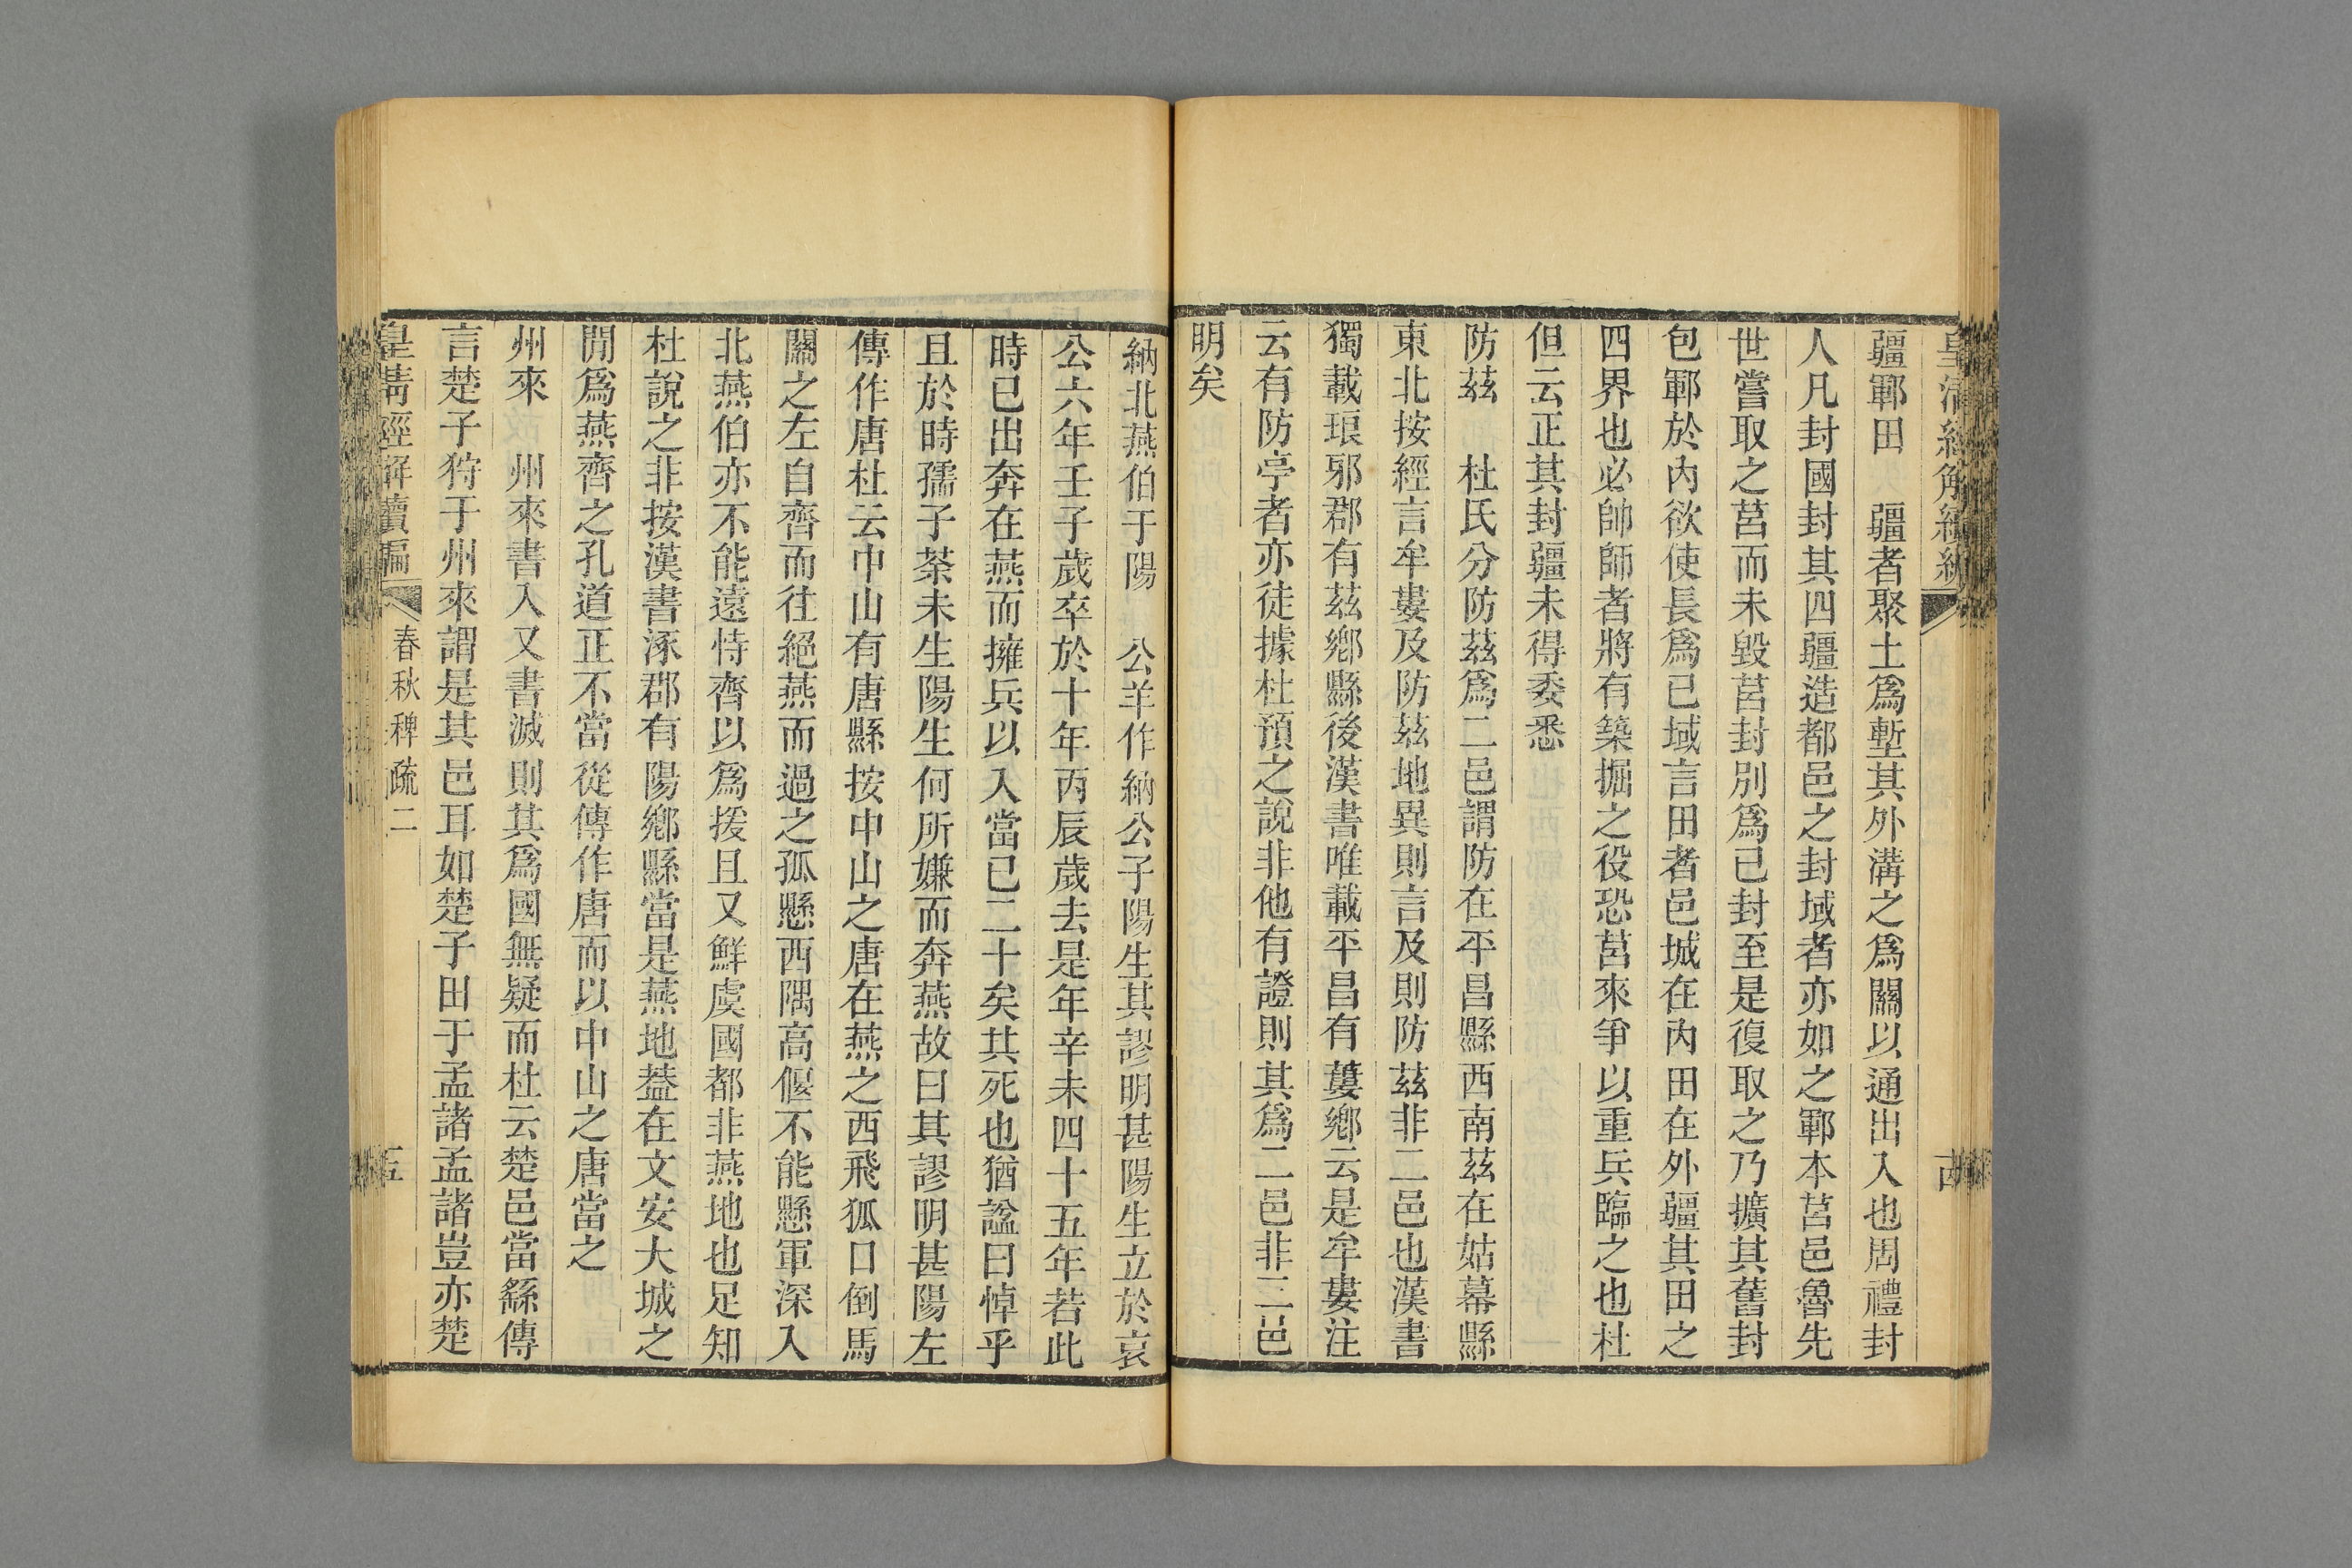 疆鄆田　疆者聚土爲壍其外溝之爲關以通出入也周禮封
人凡封國封其四疆造都邑之封域者亦如之鄆本莒邑魯先
世嘗取之莒而未毀莒封別爲已封至是復取之乃擴其舊封
包鄆於內欲使長爲已域言田者邑城在內田在外疆其田之
四界也必帥師者將有築掘之役恐莒來爭以重兵臨之也杜
但云正其封疆未得委悉
防茲　杜氏分防茲爲二邑謂防在平昌縣西南茲在姑幕縣
東北按經言牟婁及防茲地異則言及則防茲非二邑也漢書
獨載琅邪郡有茲鄉縣後漢書唯載平昌有蔞鄉云是牟婁注
云有防亭者亦徒據杜預之說非他有證則其爲二邑非三邑
明矣
納北燕伯于陽　公羊作納公子陽生其謬明甚陽生立於哀
公六年壬子歲卒於十年丙辰歲去是年辛未四十五年若此
時已出奔在燕而擁兵以入當已二十矣其死也猶諡曰悼乎
且於時孺子荼未生陽生何所嫌而奔燕故曰其謬明甚陽左
傳作唐杜云中山有唐縣按中山之唐在燕之西飛狐口倒馬
關之左自齊而往絕燕而過之孤懸西隅高偃不能懸軍深入
北燕伯亦不能遠恃齊以爲援且又鮮虞國都非燕地也足知
杜說之非按漢書涿郡有陽鄉縣當是燕地葢在文安大城之
閒爲燕齊之孔道正不當從傳作唐而以中山之唐當之
州來　州來書入又書滅則其爲國無疑而杜云楚邑當繇傳
言楚子狩于州來謂是其邑耳如楚子田于孟諸孟諸豈亦楚
皇清經解續編
春秋稗疏二